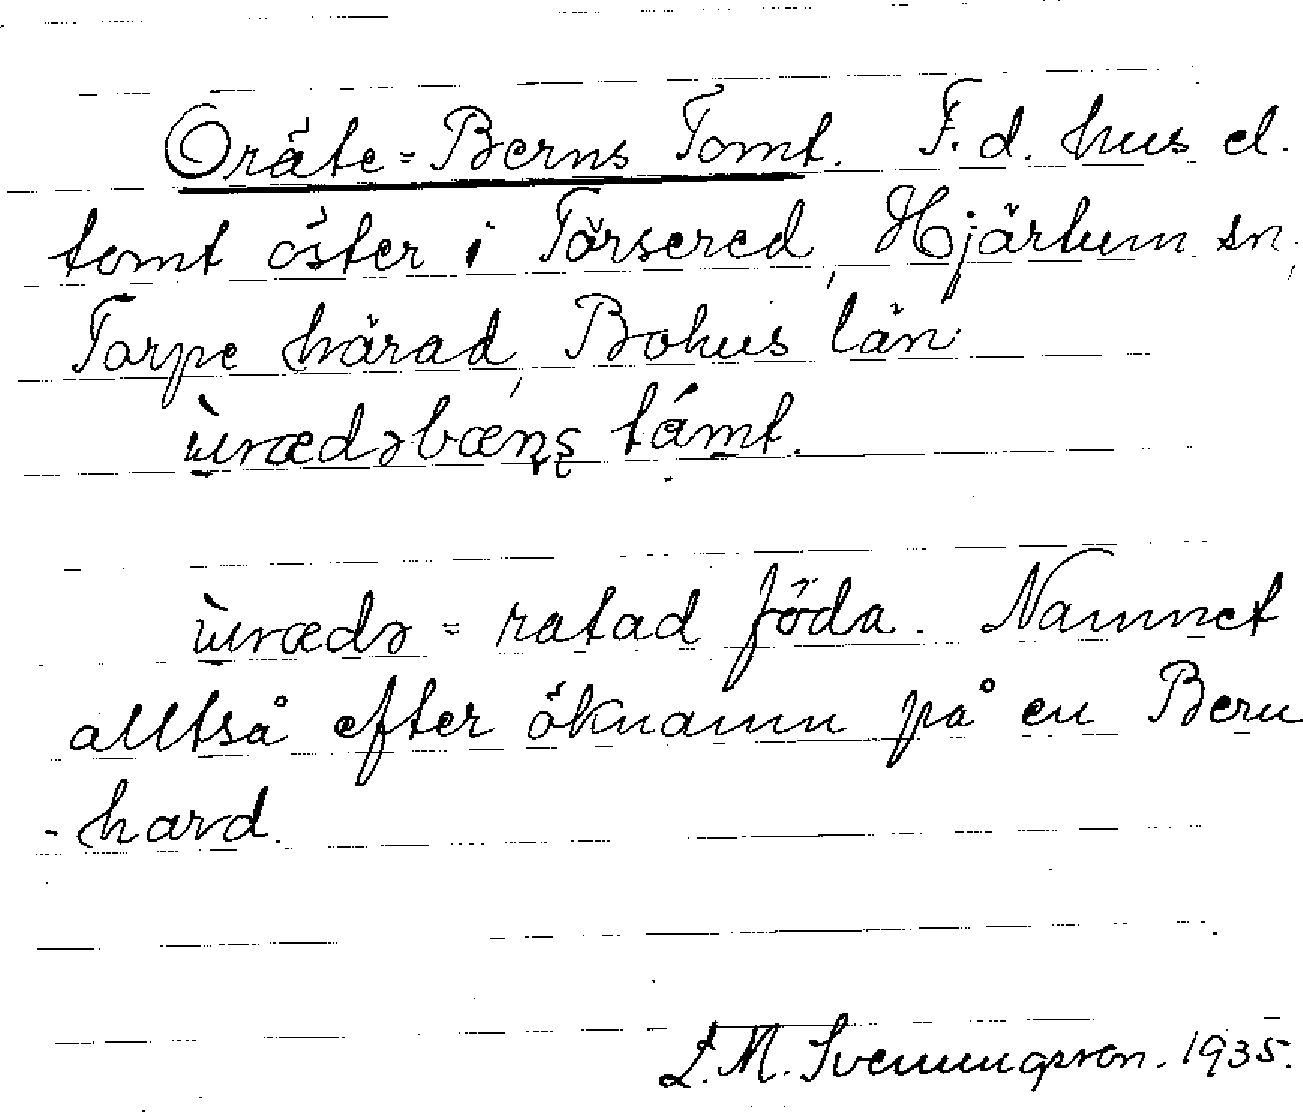 Oräte-Berns Tomt. F. d. hus el.
tomt öster i Torsered, Hjärtum sn,
Torpe härad, Bohus län
ùrædəbæɳʂ támt.
ùrædə = ratad föda. Namnet
alltså efter öknamn på en Bern
-hard.
L. M. Svenungsson. 1935.